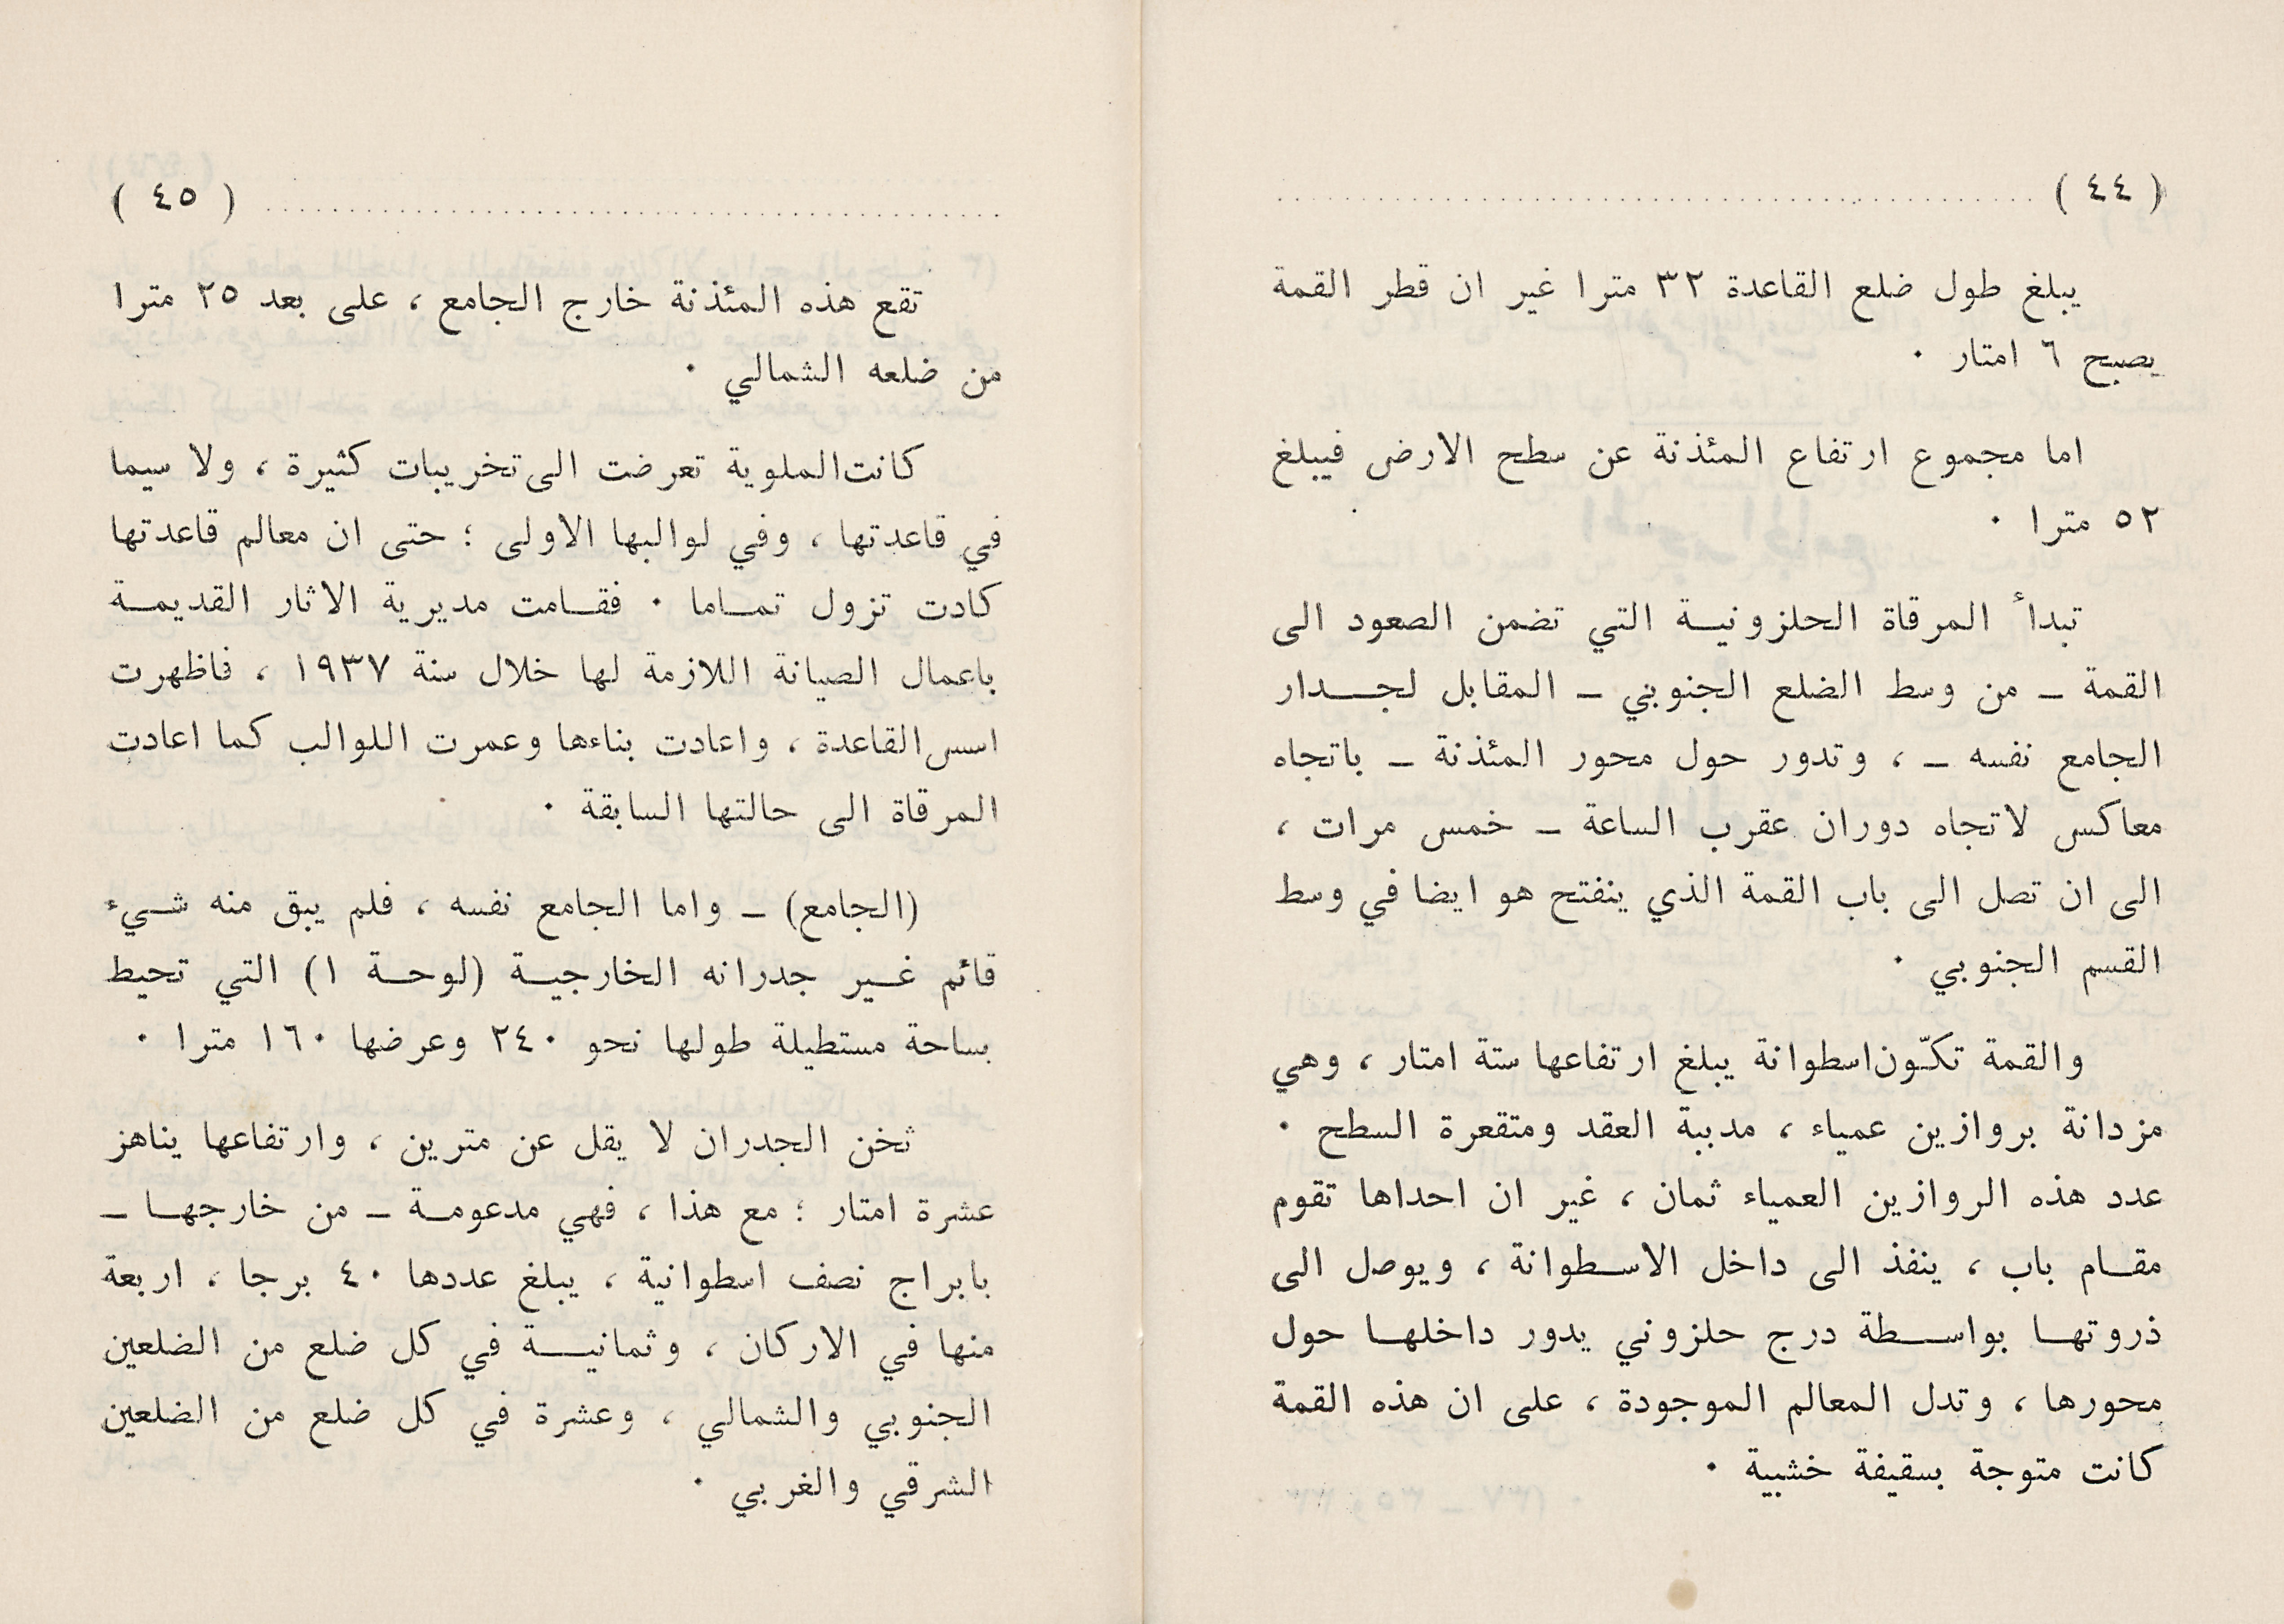 ( ٤٤ )
يبلغ طول ضلع القاعدة ٣٢ مترا غير ان قطر القمة
يصبح ٦ امتار ٠
اما مجموع ارتفاع المئذنة عن سطح الارض فيبلغ
٥٢ مترا ٠
تبدأ المرقاة الحلزونية التي تضمن الصعود الى
القمة ـ من وسط الضلع الجنوبي ـ المقابل لجدار
الجامع نفسه ـ ، وتدور حول محور المئذنة ـ باتجاه
معاكس لاتجاه دوران عقرب الساعة ـ خمس مرات ،
الى ان تصل الى باب القمة الذي ينفتح هو ايضا في وسط
القسم الجنوبي ٠
والقمة تكوّن اسطوانة يبلغ ارتفاعها ستة امتار ، وهي
مزدانة بروازين عمياء ، مدببة العقد ومتقعرة السطح ٠
عدد هذه الروازين العمياء ثمان ، غير ان احداها تقوم
مقام باب ، ينفذ الى داخل الاسطوانة ، ويوصل الى
ذروتها بواسطة درج حلزوني يدور داخلها حول
محورها ، وتدل المعالم الموجودة ، على ان هذه القمة
كانت متوجة بسقيفة خشبية ٠
( ٤٥ )
تقع هذه المئذنة خارج الجامع ، على بعد ٢٥ مترا
من ضلعه الشمالي ٠
كانت الملوية تعرضت الى تخريبات كثيرة ، ولا سيما
في قاعدتها ، وفي لوالبها الاولى ؛ حتى ان معالم قاعدتها
كادت تزول تماما ٠ فقامت مديرية الاثار القديمة
باعمال الصيانة اللازمة لها خلال سنة ١٩٣٧ ، فاظهرت
اسس القاعدة ، واعادت بناءها وعمرت اللوالب كما اعادت
المرقاة الى حالتها السابقة ٠
(الجامع) ـ واما الجامع نفسه ، فلم يبق منه شيء
قائم غير جدرانه الخارجية (لوحة ١) التي تحيط
بساحة مستطيلة طولها نحو ٢٤٠ وعرضها ١٦٠ مترا ٠
ثخن الجدران لا يقل عن مترين ، وارتفاعها يناهز
عشرة امتار ؛ مع هذا ، فهي مدعومة ـ من خارجها ـ
بابراج نصف اسطوانية ، يبلغ عددها ٤٠ برجا ، اربعة
منها في الاركان ، وثمانية في كل ضلع من الضلعين
الجنوبي والشمالي ، وعشرة في كل ضلع من الضلعين
الشرقي والغربي ٠